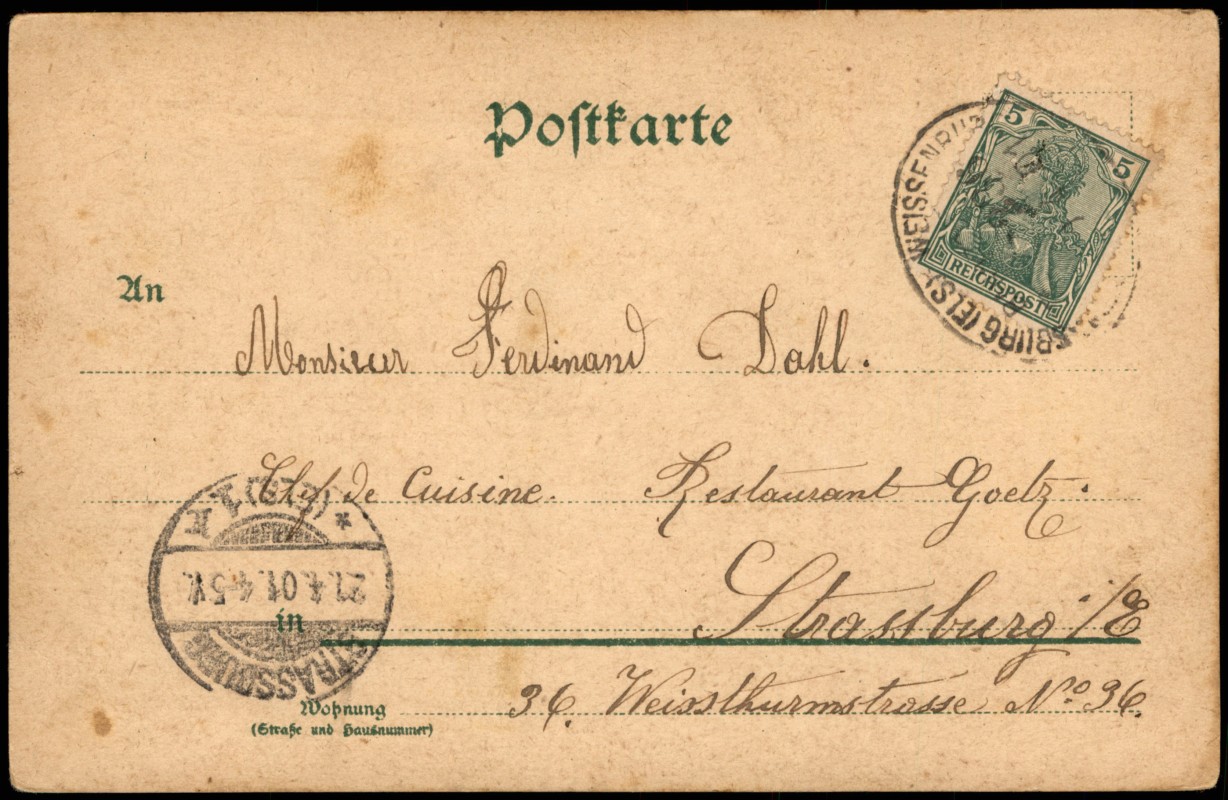 Postkarte
5 5
REICHSPOST
WEISSENBURG (ELS)
An
Monsieur Ferdinand Dahl.
Chef de Cuisine. Restaurant Goetz.
STRASSBURG (Els.) 1
21.4.01. 4-5 N.
in
Strassburg i/E
36. Weissthurmstrasse No 36.
Wohnung
(Straße und Hausnummer)